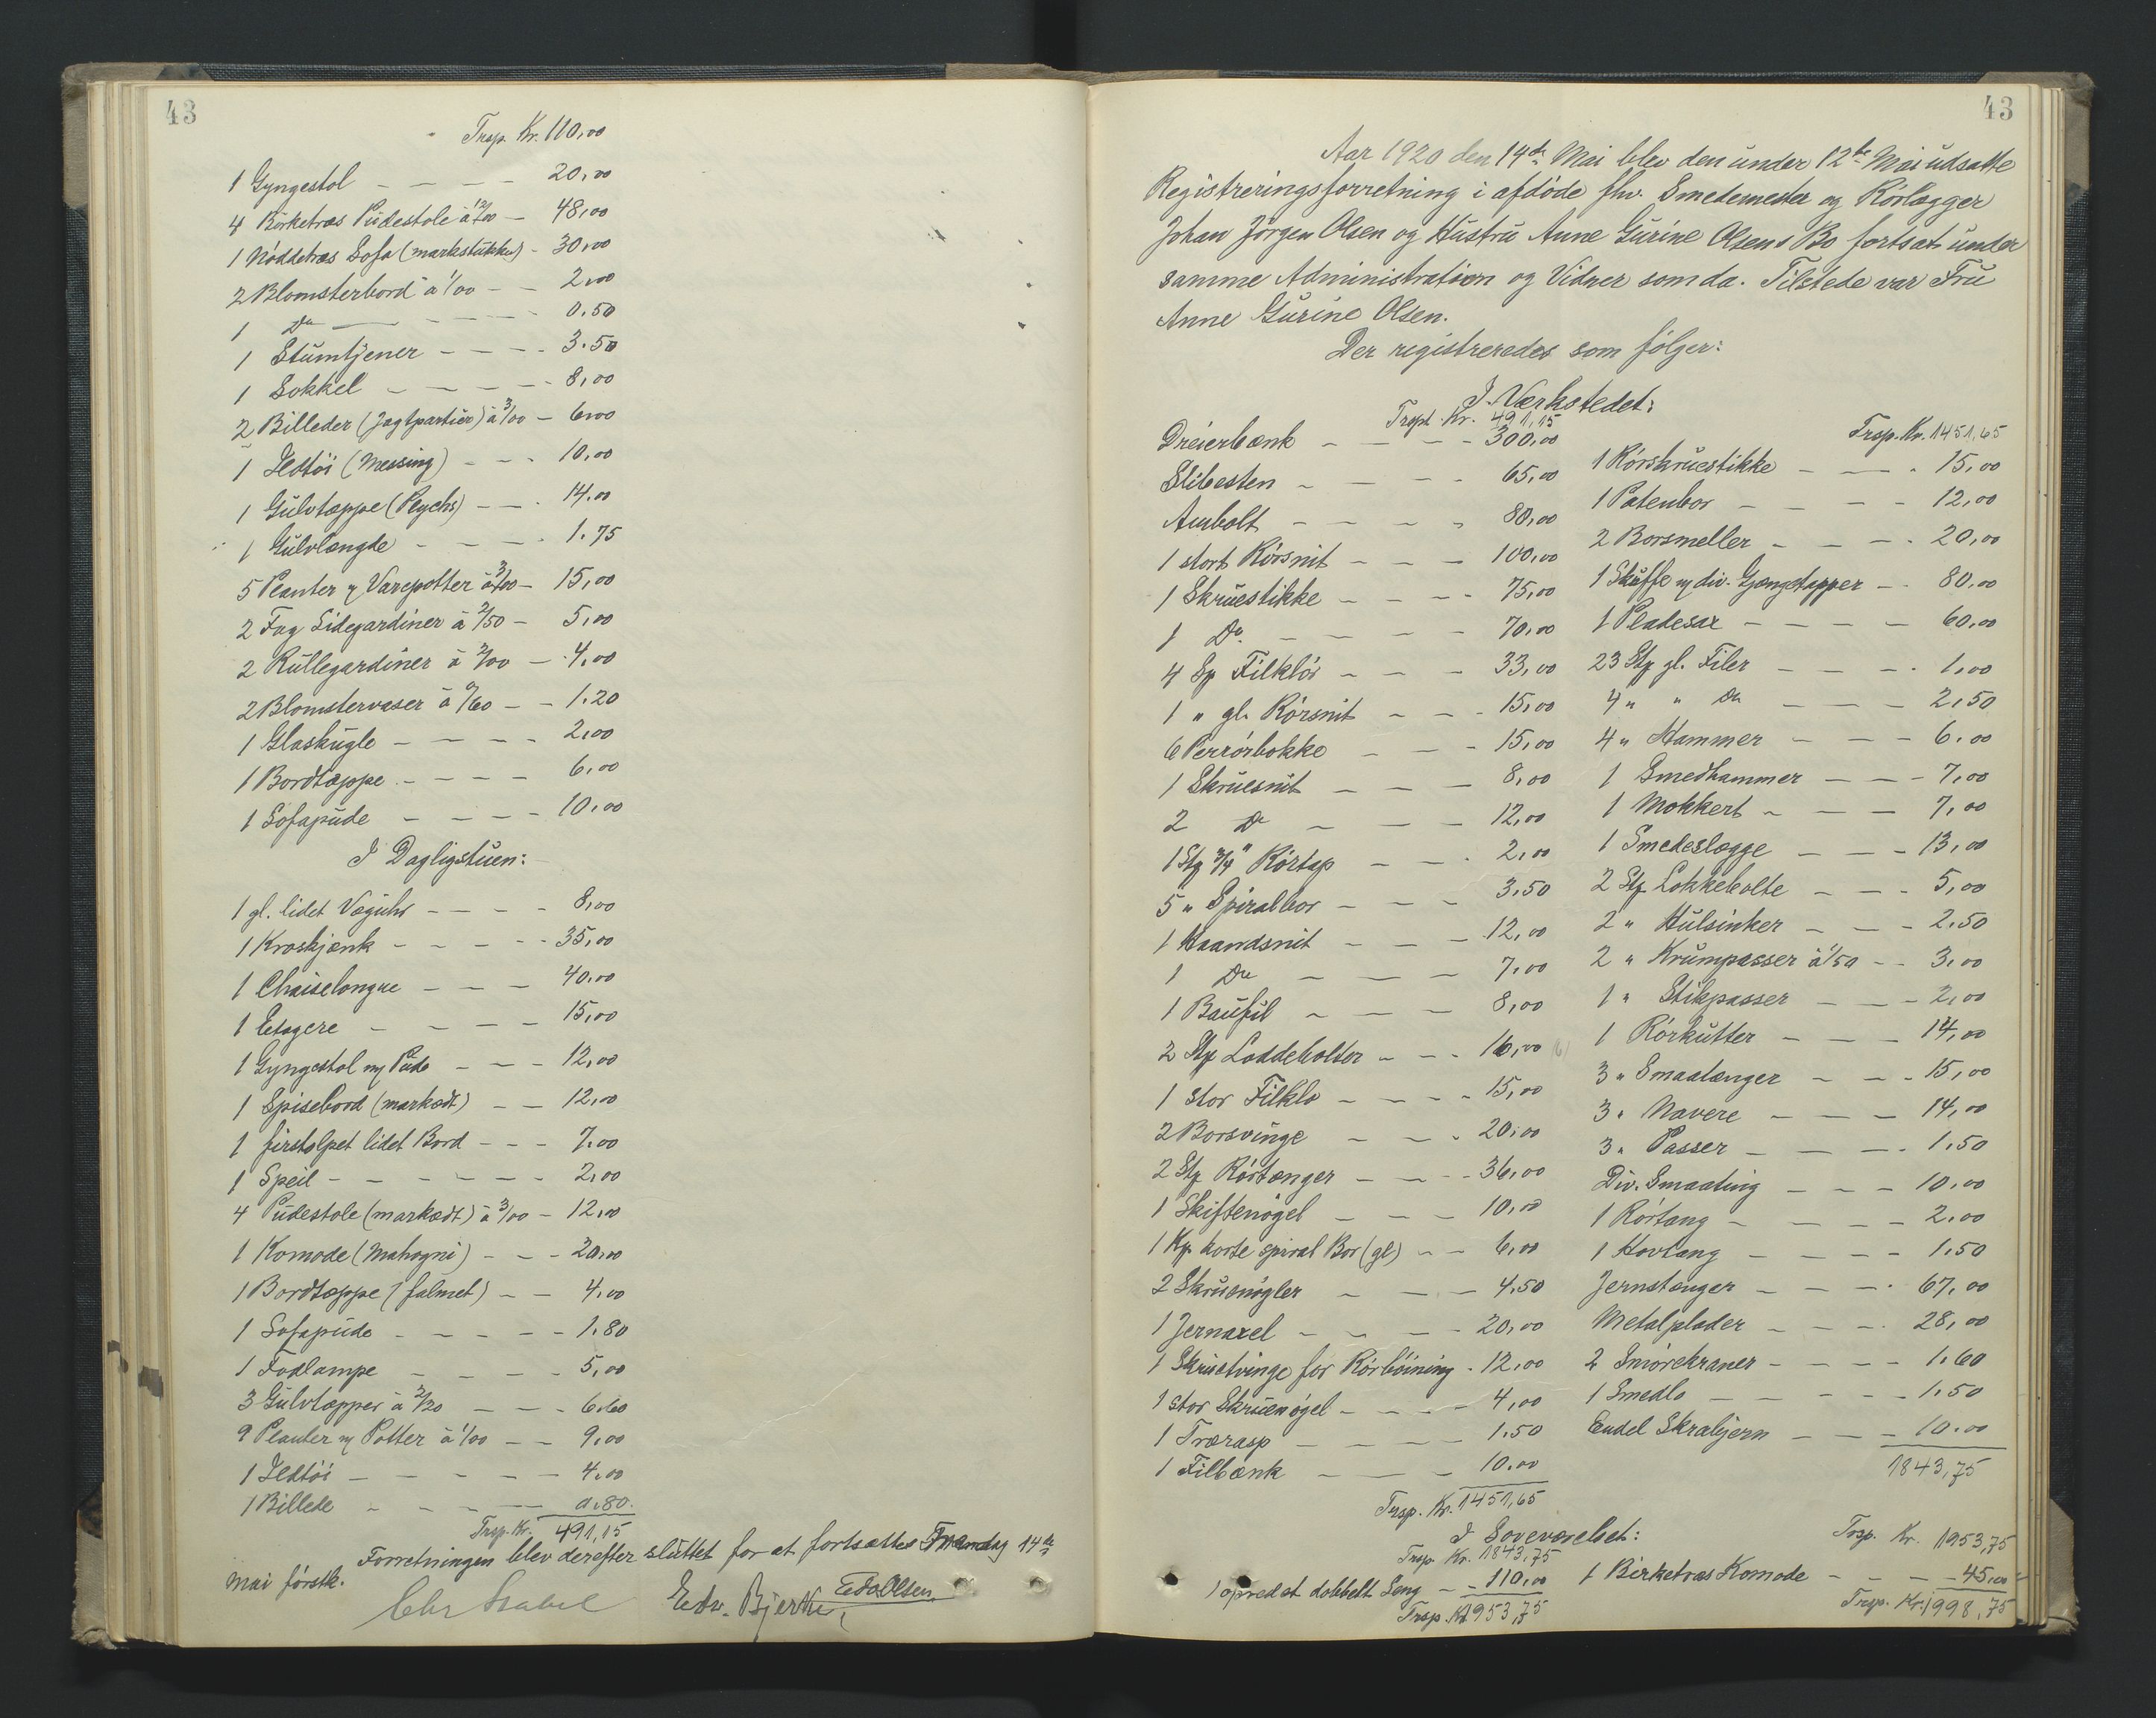 43
Trsp. Kr. 110,00
1 Gyngestol - - - - 20,00
4 Birketræs Pudestole à 12/00 - 48,00
1 Nöddetræs Sofa (markstukken) - 30,00
2 Blomsterbord à 1/00 - - 2,00
1 Do - - - - 0.50
1 Stumtjener - - - - 3.50
1 Sokkel - - - - - 8,00
2 Billeder (Jagtpartier) à 3/00 - 6,00
1 Ildtöi (Messing) - - - 10,00
1 Gulvtæppe (Plychs) - - - 14,00
1 Gulvlængde - - - - 1.75
5 Planter m/ Varepotter à 3/00 - 15,00
2 Fag Sidegardiner à 2/50 - 5,00
2 Rullegardiner à 2/00 - 4,00
2 Blomstervaser à 0/60 - - 1.20
1 Glaskugle - - - - 2,00
1 Bordtæppe - - - - 6,00
1 Sofapude - - - - 10,00
I Dagligstuen:
1 gl. lidet Vægühr - - - - 8,00
1 Kroskjænk - - - - - 35,00
1 Chaiselongue - - - 40,00
1 Etagere - - - - 15,00
1 Gyngestol m/ Pude - - - 12,00
1 Spisebord (markædt) - - 12,00
1 firstolpet lidet Bord - - - 7,00
1 Speil - - - - - - 2,00
4 Pudestole (markædt) à 3/00 - 12,00
1 Komode (Mahogni) - - - 20,00
1 Bordtæppe (falmet) - - 4,00
1 Sofapude - - - - - 1.80
1 Fodlampe - - - - 5,00
3 Gulvtæpper à 2/20 - - - 6.60
9 Planter m/ Potter à 1/00 - - 9,00
1 Ildtöi - - - - - 4,00
1 Billede - - - - 0.80.
Trsp. Kr. 491,15
Forretningen blev derefter sluttet for at fortsættes Fremdag 14de
Mai förstk.
Edv. Bjerke, Edv Olsen.
43
Aar 1920 den 14de Mai blev den under 12te Mai udsatte
Registreringsforretning i afdöde fhv. Smedemester og Rörlægger
Johan Jörgen Olsen og Hustru Anne Gurine Olsens Bo fortsat under
samme Administration og Vidner som da. Tilstede var Fru
Anne Gurine Olsen.
Der registreredes som fölger:
I Værkstedet:
Trspt. Kr. 491,15
Dreierbænk - - - - 300,00
Slibesten - - - - 65,00
Ambolt - - - - 80,00
1 stort Rörsnit - - - 100,00
1 Skruestikke - - - - 75,00
1 Do - - - - 70,00
4 Sp Filklör - - - 33,00
1 " gl. Rörsnit - - - 15,00
6 Perrörbokke - - - 15,00
1 Skruesnit - - - 8,00
2 Do - - - 12,00
1 Stg 3/4" Rörtap - - - 2,00
5 " Spiralbor - - - 3.50
1 Haandsnit - - - 12,00
1 Do - - - 7,00
1 Baufil - - - 8,00
2 Stg Loddebolter - - - 16,00 (6)
1 stor Filklo - - - - 15,00
2 Borsvinge - - - 20,00
2 Stg Rörtænger - - - 36,00
1 Skiftenögel - - - 10,00
1 Kp. korte spiral Bor (gl) - - 6,00
2 Skruenögler - - - 4.50
1 Jernaxel - - - - 20,00
1 Skruetvinge for Rörböining - 12,00
1 stor Skruenögel - - - - 4,00
1 Trærasp - - - - 1.50
1 Filbænk - - - 10.00
Trsp. Kr. 1451,65
Trsp. Kr. 1451,65
1 Rörskruestikke - - - 15,00
1 Patenbor - - - - 12,00
2 Borsmeller - - - - 20,00
1 Skuffe m/ div. Gjængetapper - - 80,00
1 Pladesax - - - - 60,00
23 Stg gl. Filer - - - - 1,00
4 " " Do - - - 2,50
4 " Hammer - - - 6.00
1 Smedhammer - - - 7,00
1 Mokkert - - - 7,00
1 Smedeslægge - - - 13,00
2 Stg Lokkebolte - - - 5,00
2 " Hulsinker - - - 2.50
2 " Krumpasser à 1/50 - - 3,00
1 " Stikpasser - - - 2,00
1 Rörkutter - - - 14,00
3 " Smaatænger - - - 15,00
3 " Navere - - - 14,00
3 " Passer - - - - 1.50
Div. Smaating - - - 10,00
1 Rörtang - - - - 2,00
1 Hovtang - - - - 1.50
Jernstænger - - - - 67,00
Metalplader - - - - 28,00
2 Smörekraner - - - - 1.60
1 Smedlo - - - - 1.50
Endel Skrabjern - - - 10.00
1843,75
I Soveværelset:
Trsp. Kr. 1843,75
1 opredet dobbelt Seng - - 110,00
Trsp. Kr. 1953,75
Trsp. Kr. 1953,75
1 Birketræs Komode - - - - 45,00
Trsp. Kr. 1998,75